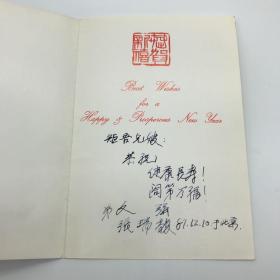 恭贺
新禧
Best Wishes
for a
Happy & Prosperous New Year
恭祝
健康长寿！
阖第万福！
弟 文
张瑞 87.12.10 于北京